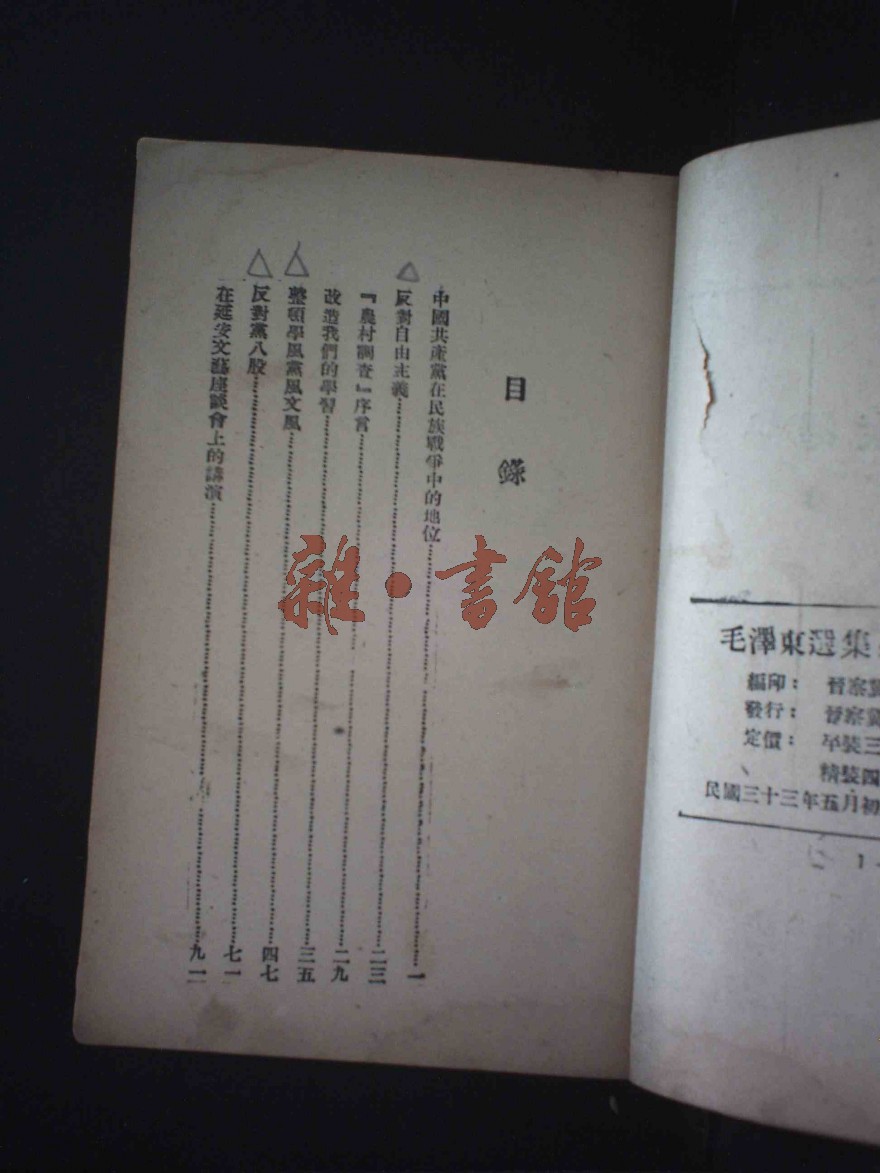 毛澤東選集
編印： 晉察冀
發行： 晉察冀
定價： 平裝三
精裝四
民國三十三年五月初
目錄
中國共產黨在民族戰爭中的地位……一
反對自由主義……二三
『農村調查』序言……二九
改造我們的學習……三五
整頓學風黨風文風……四七
反對黨八股……七一
在延安文藝座談會上的講演……九一
雜•書館